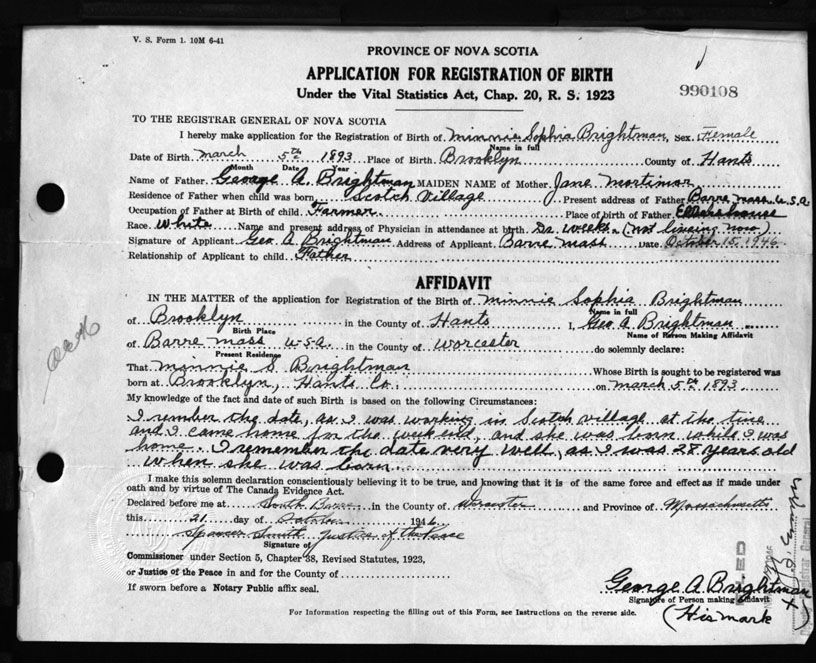 V. S. Form 1. 10M 6-41
PROVINCE OF NOVA SCOTIA
APPLICATION FOR REGISTRATION OF BIRTH
990108
Under the Vital Statistics Act, Chap. 20, R. S. 1923
TO THE REGISTRAR GENERAL OF NOVA SCOTIA
I hereby make application for the Registration of Birth of Minnie Sophia Brightman, Sex Female
Name in full
Date of Birth March 5th 1893 Place of Birth Brooklyn County of Hants
Month Date Year
Name of Father George A. Brightman MAIDEN NAME of Mother Jane Mortimor
Residence of Father when child was born Scotch Village Present address of Father Barre Mass. U.S.A.
Occupation of Father at Birth of child Farmer. Place of birth of Father Ellershouse
Race White Name and present address of Physician in attendance at birth Dr. Weeks (not living now)
Signature of Applicant Geo. A Brightman Address of Applicant Barre Mass Date October 15, 1946
Relationship of Applicant to child Father
AFFIDAVIT
IN THE MATTER of the application for Registration of the Birth of Minnie Sophia Brightman
Name in full
of Brooklyn in the County of Hants I, Geo A Brightman
Birth Place Name of Person Making Affidavit
of Barre Mass U.S.A. in the County of Worcester do solemnly declare:
Present Residence
That Minnie S. Brightman Whose Birth is sought to be registered was
born at Brooklyn, Hants Co. on March 5th 1893.
My knowledge of the fact and date of such Birth is based on the following Circumstances:
I rember the date, as I was working in Scotch Village at the time
and I came home for the week end, and she was born while I was
home. I remember the date very well, as I was 28 years old
when she was born.
I make this solemn declaration conscientiously believing it to be true, and knowing that it is of the same force and effect as if made under
oath and by virtue of The Canada Evidence Act.
Declared before me at South Barre in the County of Worcester and Province of Massachusetts
this 21 day of October 1946
Spencer Smith Justice of the Peace
Signature of
Commissioner under Section 5, Chapter 38, Revised Statutes, 1923,
or Justice of the Peace in and for the County of
If sworn before a Notary Public affix seal.
George A Brightman
Signature of Person making Affidavit
(His mark X
For Information respecting the filling out of this Form, see Instructions on the reverse side.